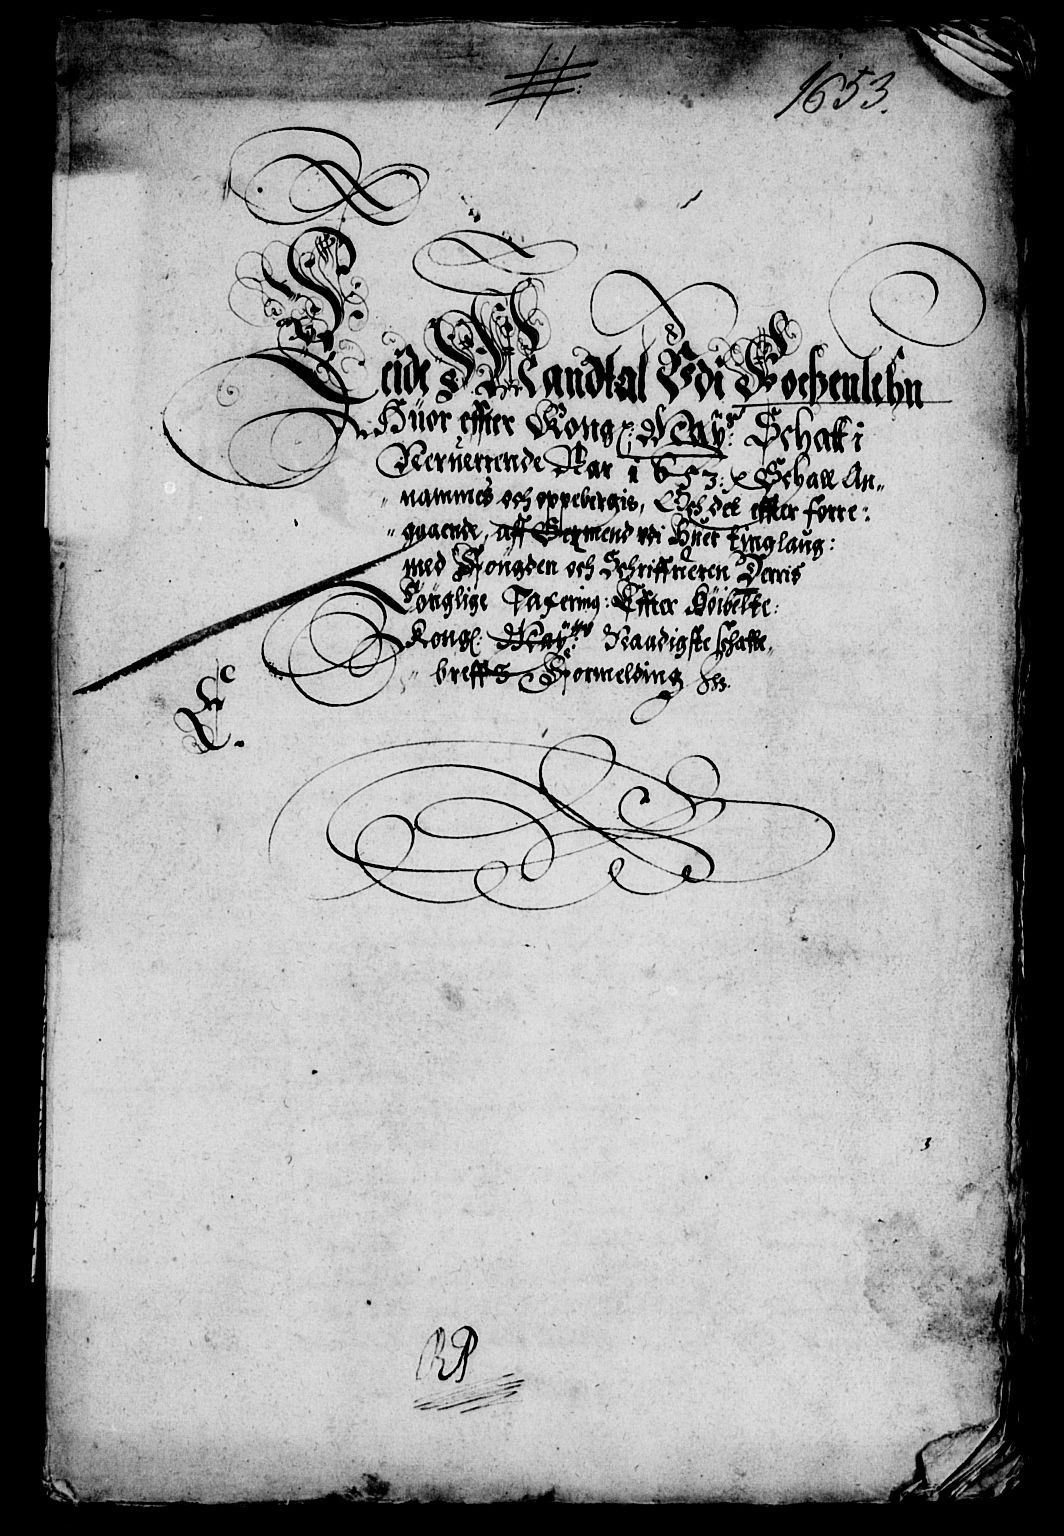 #:
1653.
Leide Mandtal Udi Echenlehn
Huor effter Kong: May:ts Schatt i
Nerverrende Aar 1653: Schall An-
nammes och oppebergis, Och det effter forre:
ggaende, aff Sexmend udi Huer tinglaug:
med Fougden och Schriffueren Derris
Louglige Taxering: Effter Høibelte:
Kong: May:ttz Naadigste schatte,
breffs Formelding
E.
RP